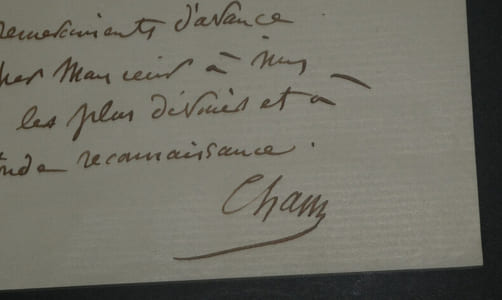 remerciments d'avance
cher Monsieur à mes
les plus dévoués et à
onde reconnaissance.
Cham